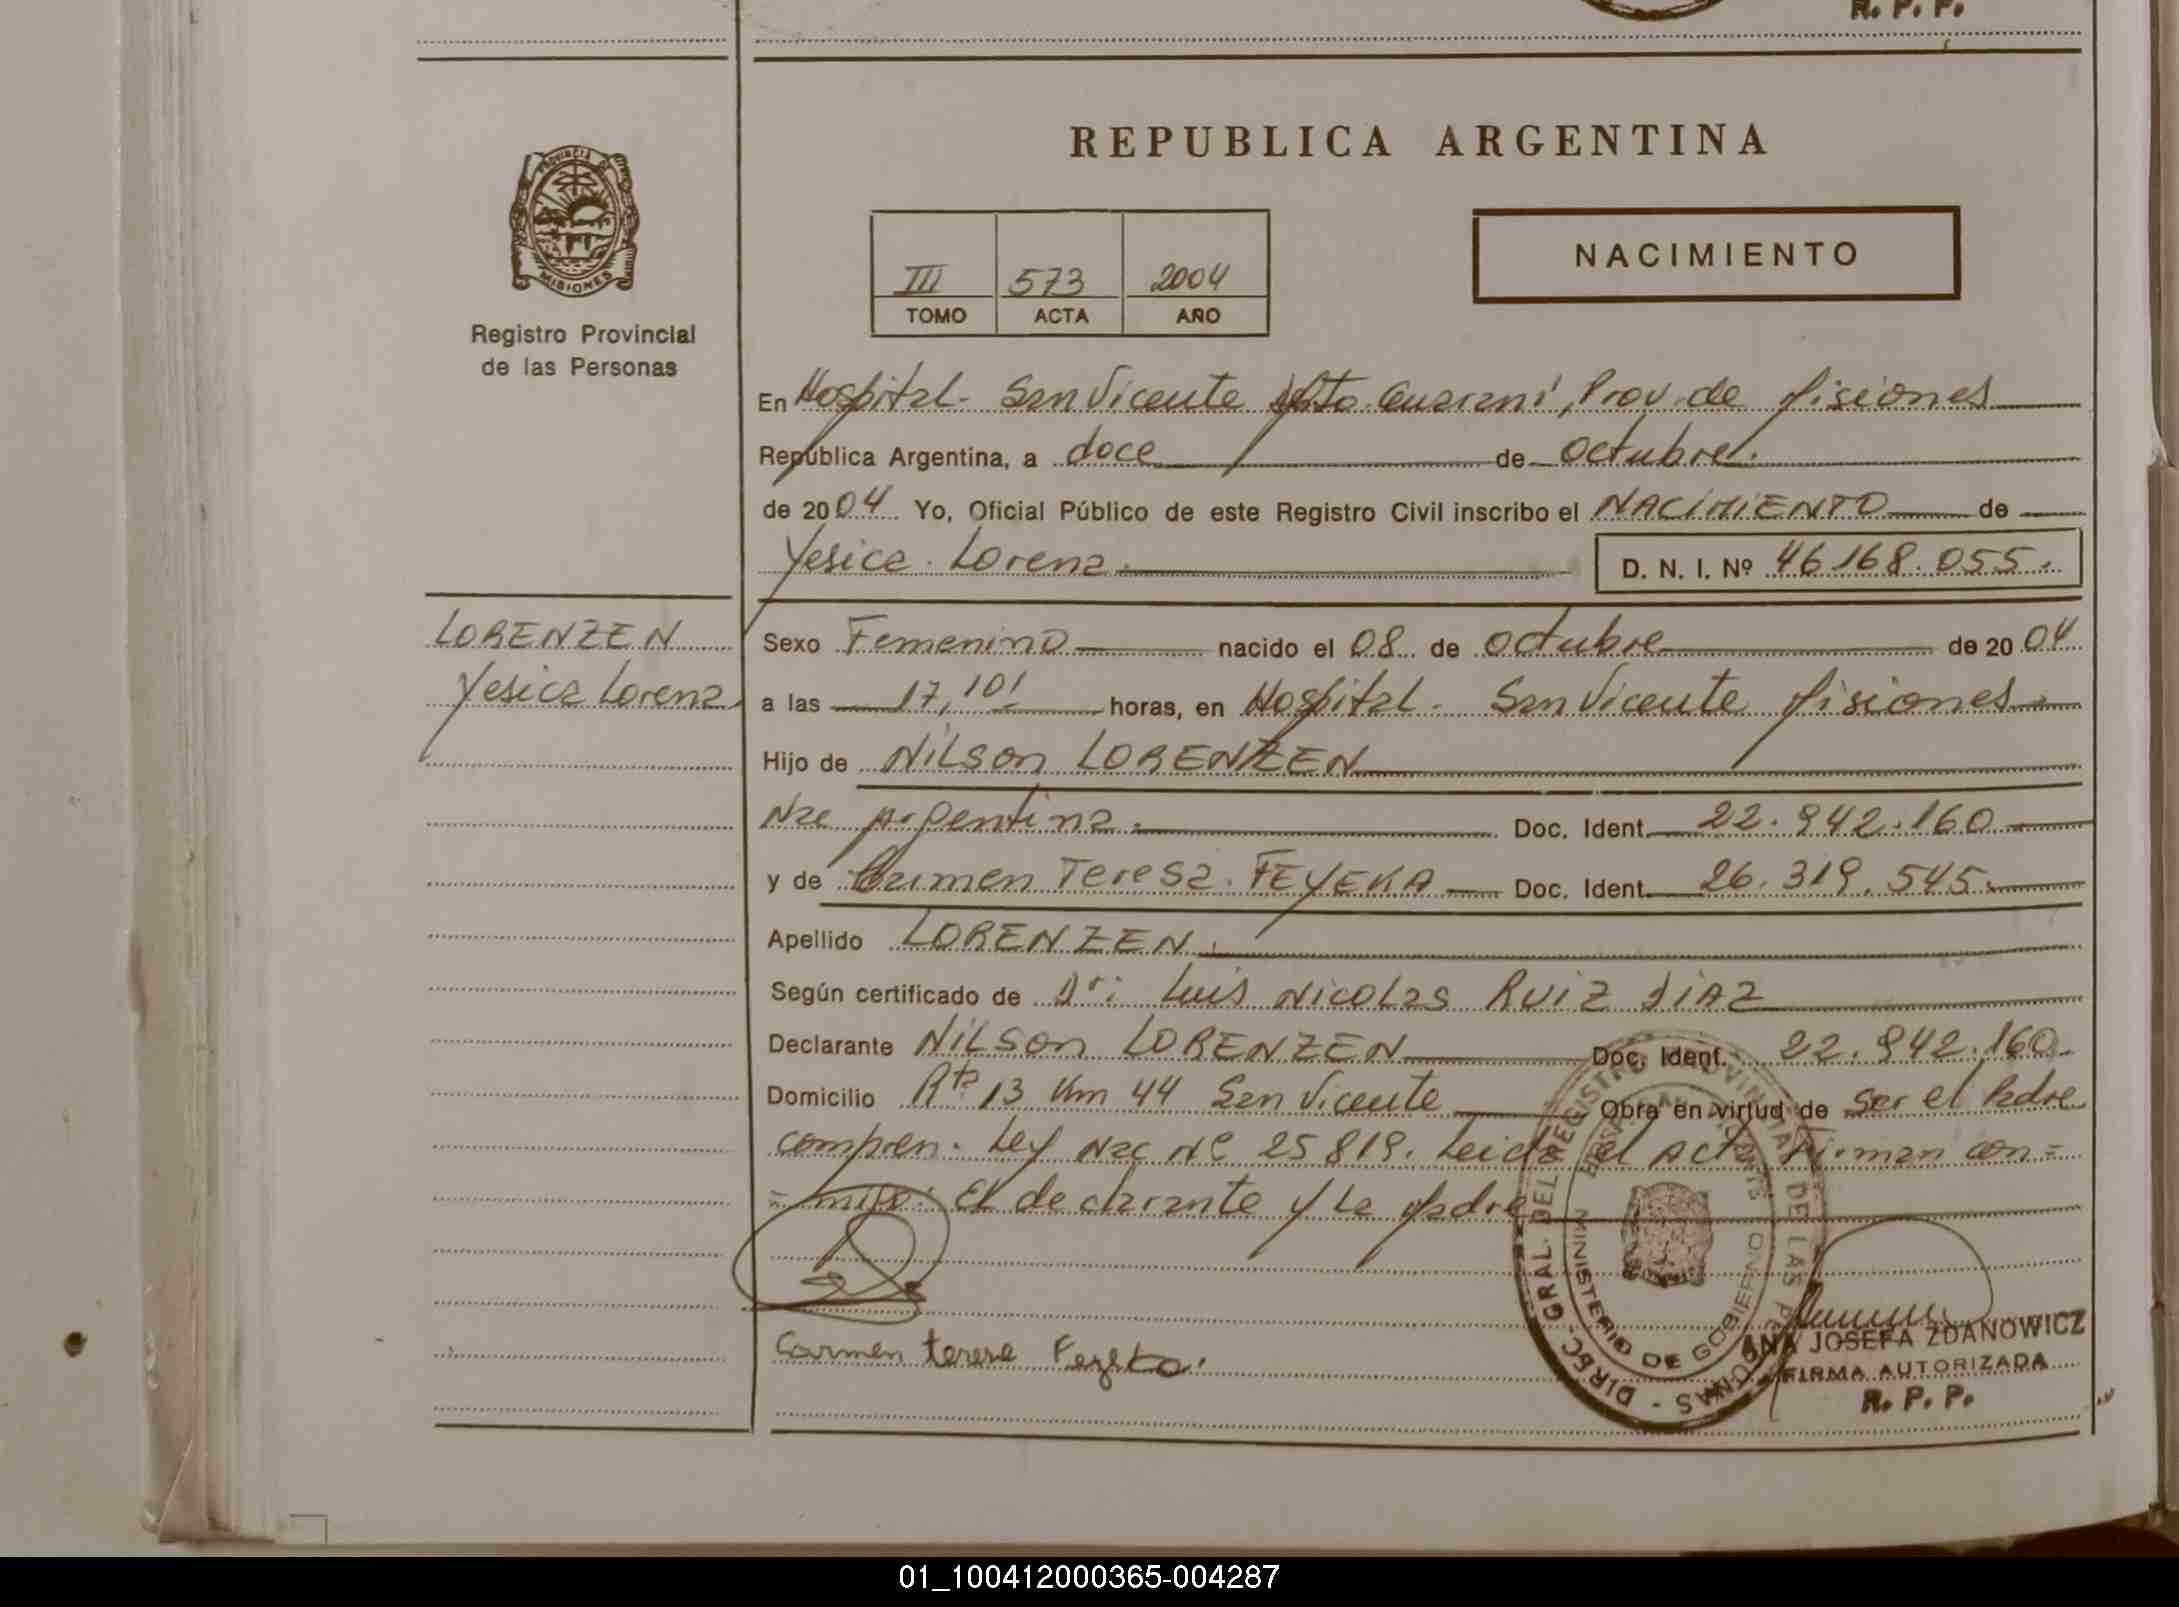 R. P. P.
PROVINCIA DE
MISIONES
Registro Provincial
de las Personas
REPUBLICA ARGENTINA
III 573 2004
TOMO ACTA AÑO
NACIMIENTO
En Hospital - San Vicente Dpto Guarani, Prov. de Misiones
República Argentina, a doce de octubre.
de 2004 Yo, Oficial Público de este Registro Civil inscribo el NACIMIENTO de
Yesica Lorena D. N. I. Nº 46.168.055.
LORENZEN
Yesica Lorena
Sexo Femenino nacido el 08 de octubre de 2004
a las 17,10' horas, en Hospital - San Vicente Misiones
Hijo de NiLSon LORENZEN
Nac Argentina. Doc. Ident. 22.942.160
y de Carmen Teresa FEYEKA Doc. Ident. 26.319.545.
Apellido LORENZEN.
Según certificado de Dr: Luis Nicolas RUIZ DIAZ
Declarante NiLSon LORENZEN Doc. Ident. 22.942.160.
Domicilio Rta 13 Km 44 San Vicente Obra en virtud de ser el Padre
compren. Ley Nac Nº 25819. Leida el Acta Firman con=
=migo: El declarante y La Madre
Carmen teresa Feyeka.
DIREC. GRAL. DEL REGISTRO PROVINCIAL DE LAS PERSONAS
MINISTERIO DE GOBIERNO
ANA JOSEFA ZDANOWICZ
FIRMA AUTORIZADA
R. P. P.
01_100412000365-004287